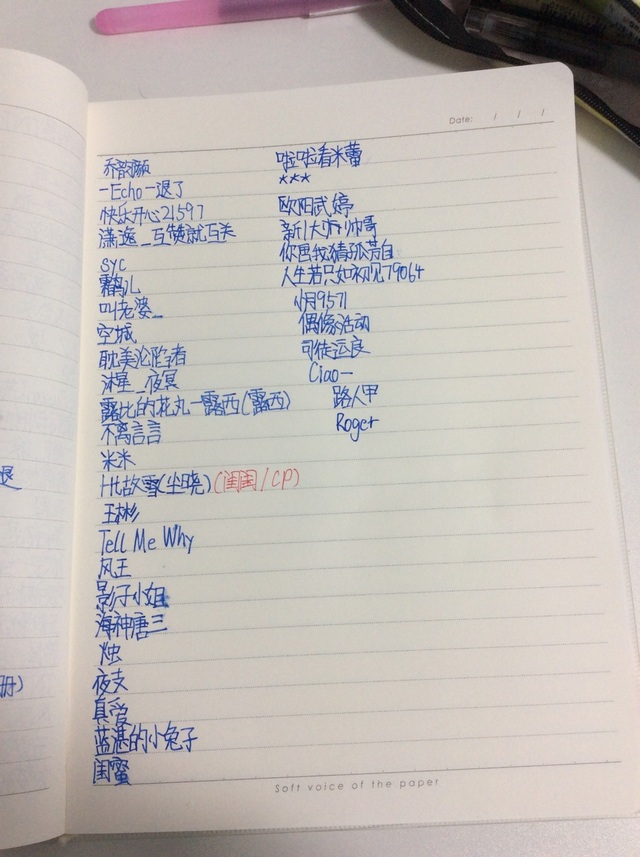 Date: / / /
乔韵颜
-Echo-退了
快乐开心21597
潇逸_互赞就互关
syc
霜儿
叫老婆_
空城
耽美沦陷者
沫星_夜冥
露比的花丸-露西(露西)
不离言言
米米
Ht故雪(尘晓)(闺闺/CP)
玉彬
Tell Me Why
风王
影子小姐
海神唐三
烛
夜支
真爱
蓝湛的小兔子
闺蜜
啦啦看米蕾
***
欧阳武婷
新1大帅帅哥
你愚我猜孤芳自
人生若只如初见79064
小月9571
偶像活动
司徒运良
Ciao一
路人甲
Roger
退
册)
Soft voice of the paper